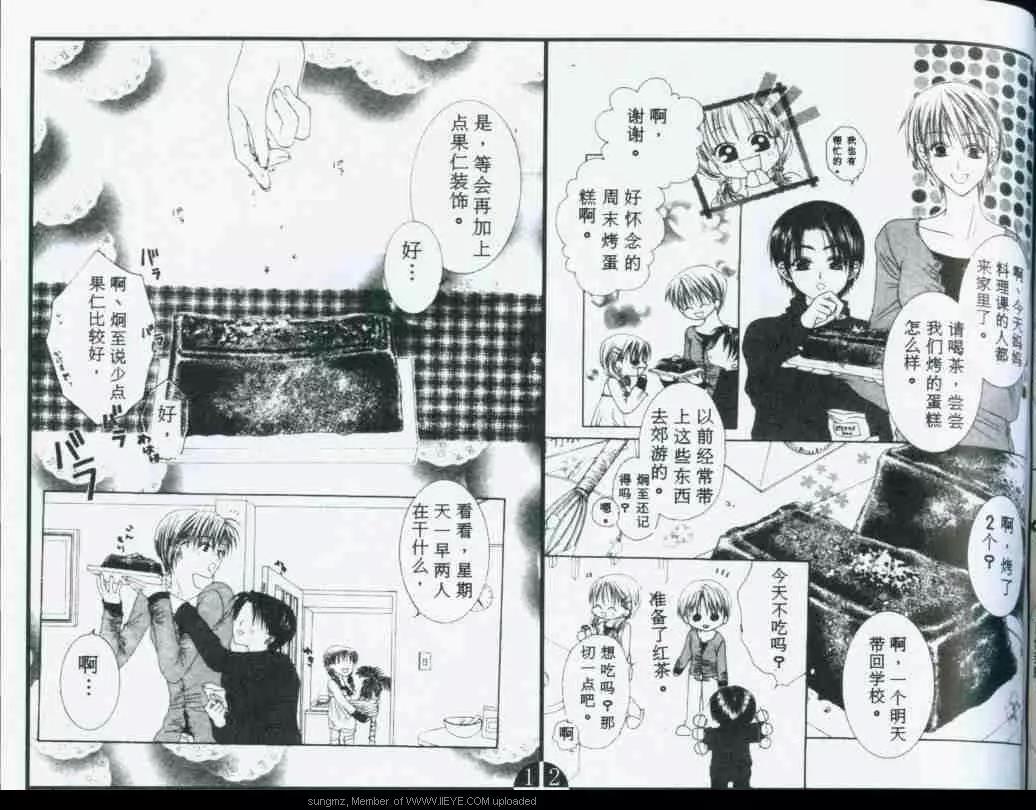 啊，今天妈妈
料理课的人都
来家里了。
请喝茶，尝尝
我们烤的蛋糕
怎么样。
我也有
帮忙的。
啊，
谢谢。
好怀念的
周末烤蛋
糕啊。
以前经常带
上这些东西
去郊游的。
炯至还记
得吗？
嗯。
啊，烤了
2个？
啊，一个明天
带回学校。
今天不吃吗？
准备了红茶。
想吃吗？那
切一点吧。
啊
是，等会再加上
点果仁装饰。
好…
啊、炯至说少点
果仁比较好，
好，
バラ
バラ
バラ
看看，星期
天一早两人
在干什么，
啊…
1 2
sungmz, Member of WWW.IIEYE.COM uploaded